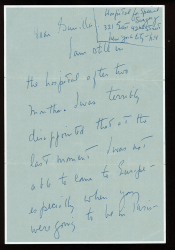 Dear Gunilla
Hospital for Special
Surgery
321 East 42nd Street
New York City - N.Y.
I am still in
the hospital after two
months. I was terribly
disappointed that at the
last moment I was not
able to come to Europe
especially when you
were going to be in